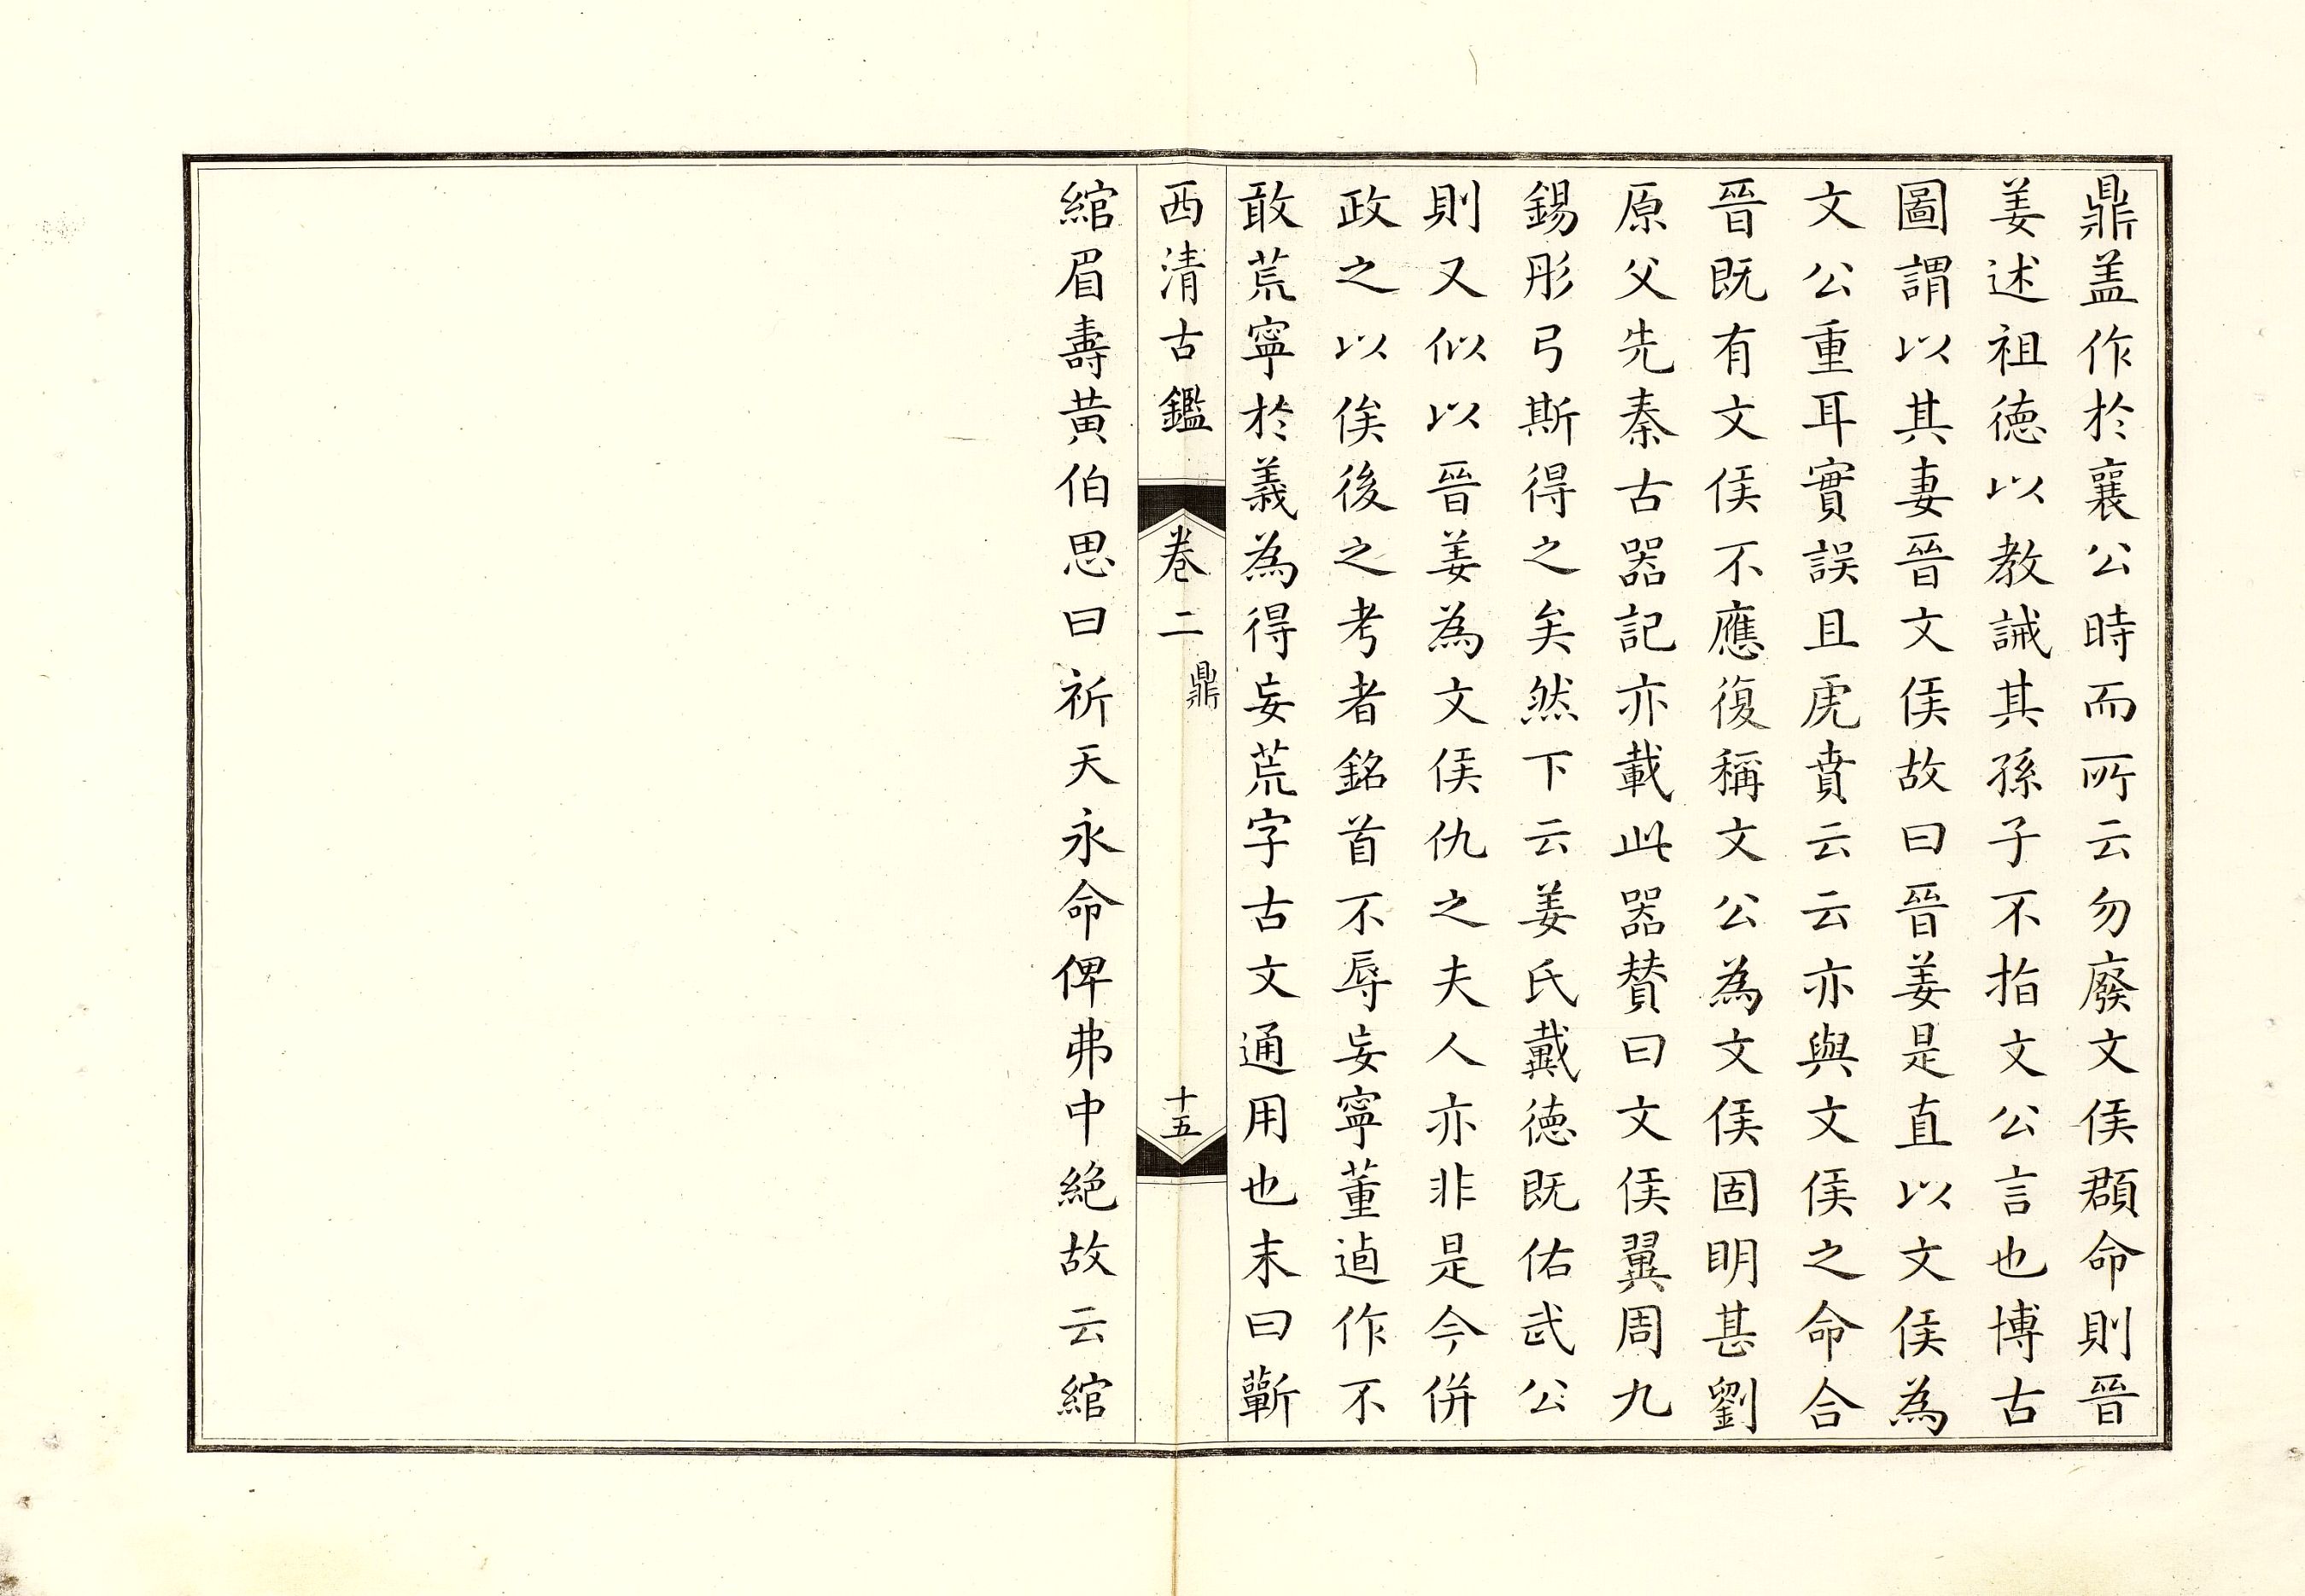 鼎盖作於襄公時而所云勿廢文侯顜命則晉
姜述祖徳以教誡其孫子不指文公言也博古
圖謂以其妻晉文侯故曰晉姜是直以文侯為
文公重耳實誤且虎賁云云亦與文侯之命合
晉既有文侯不應復稱文公為文侯固明甚劉
原父先秦古器記亦載此器賛曰文侯翼周九
錫彤弓斯得之矣然下云姜氏戴徳既佑武公
則又似以晉姜為文侯仇之夫人亦非是今併
政之以俟後之考者銘首不辱妄寧董逌作不
敢荒寧於義為得妄荒字古文通用也末曰蘄
西清古鑑
卷二
鼎
十五
綰眉壽黄伯思曰祈天永命俾弗中絶故云綰